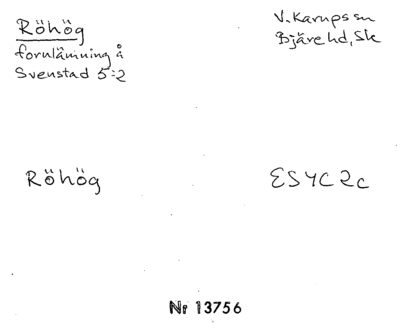 Röhög
fornlämning å
Svenstad 5:2
V. Karups sn
Bjäre hd, Sk
Röhög
ESYC2c
Nr 13756